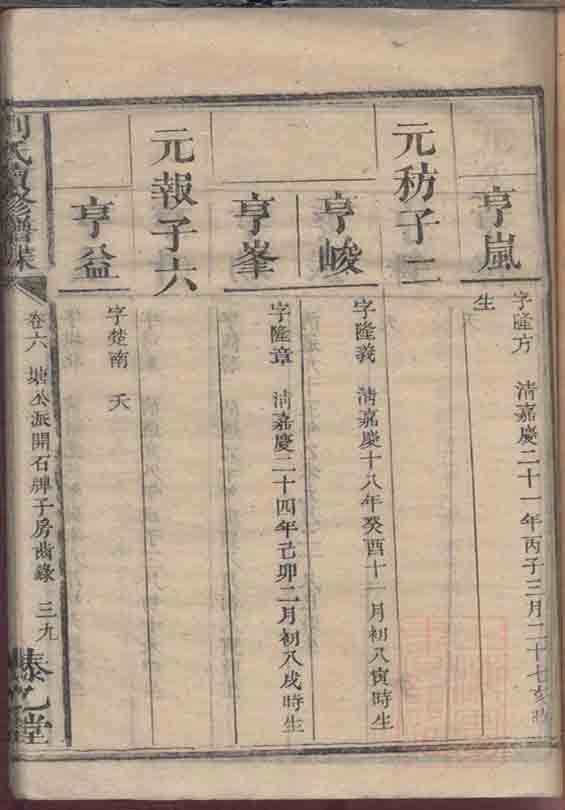 亨嵐
字隆方 清嘉慶二十一年丙子三月二十七亥時
生
元䄱子二
亨峻
字隆義 清嘉慶十八年癸酉十一月初八寅時生
亨峯
字隆章 清嘉慶二十四年己卯二月初八戌時生
元報子六
亨益
字楚南 夭
劉氏 修譜牒
卷六 塘公派開石牌子房齒錄 三九
泰乙堂